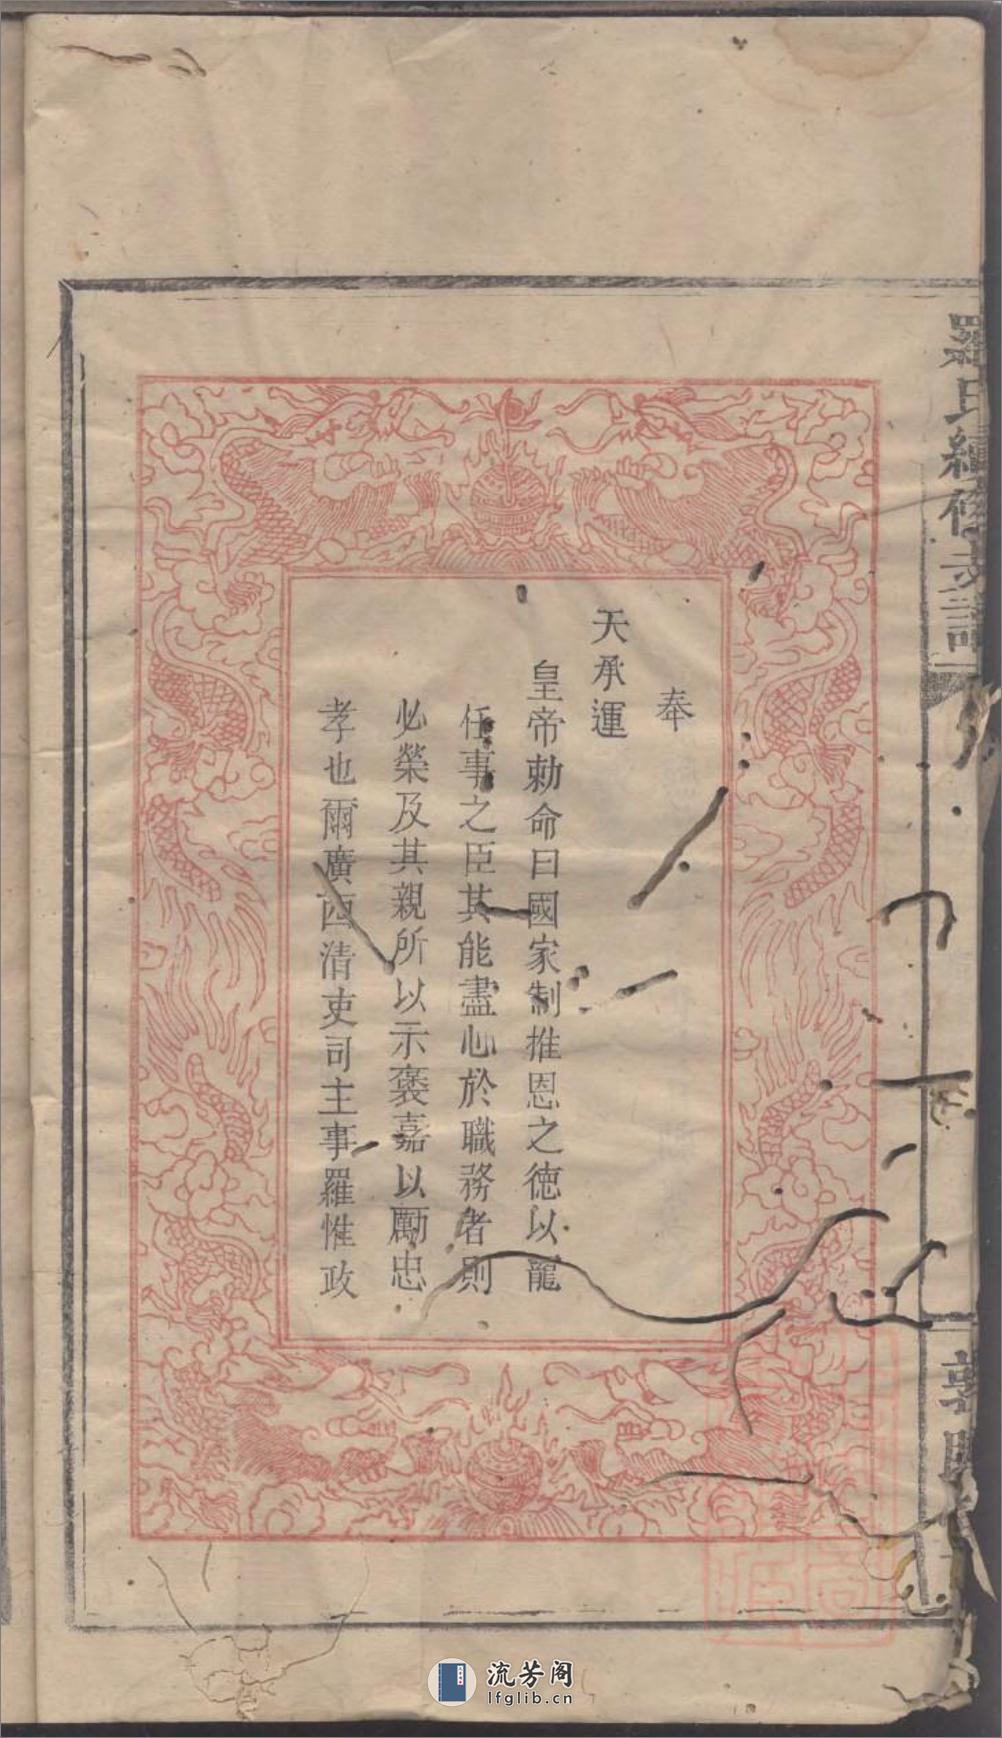 羅氏續修支譜
奉
天承運
皇帝勅命曰國家制推恩之徳以寵
任事之臣其能盡心於職務者則
必榮及其親所以示褒嘉以勵忠
孝也爾廣西清吏司主事羅惟政
流芳阁
lfglib.cn